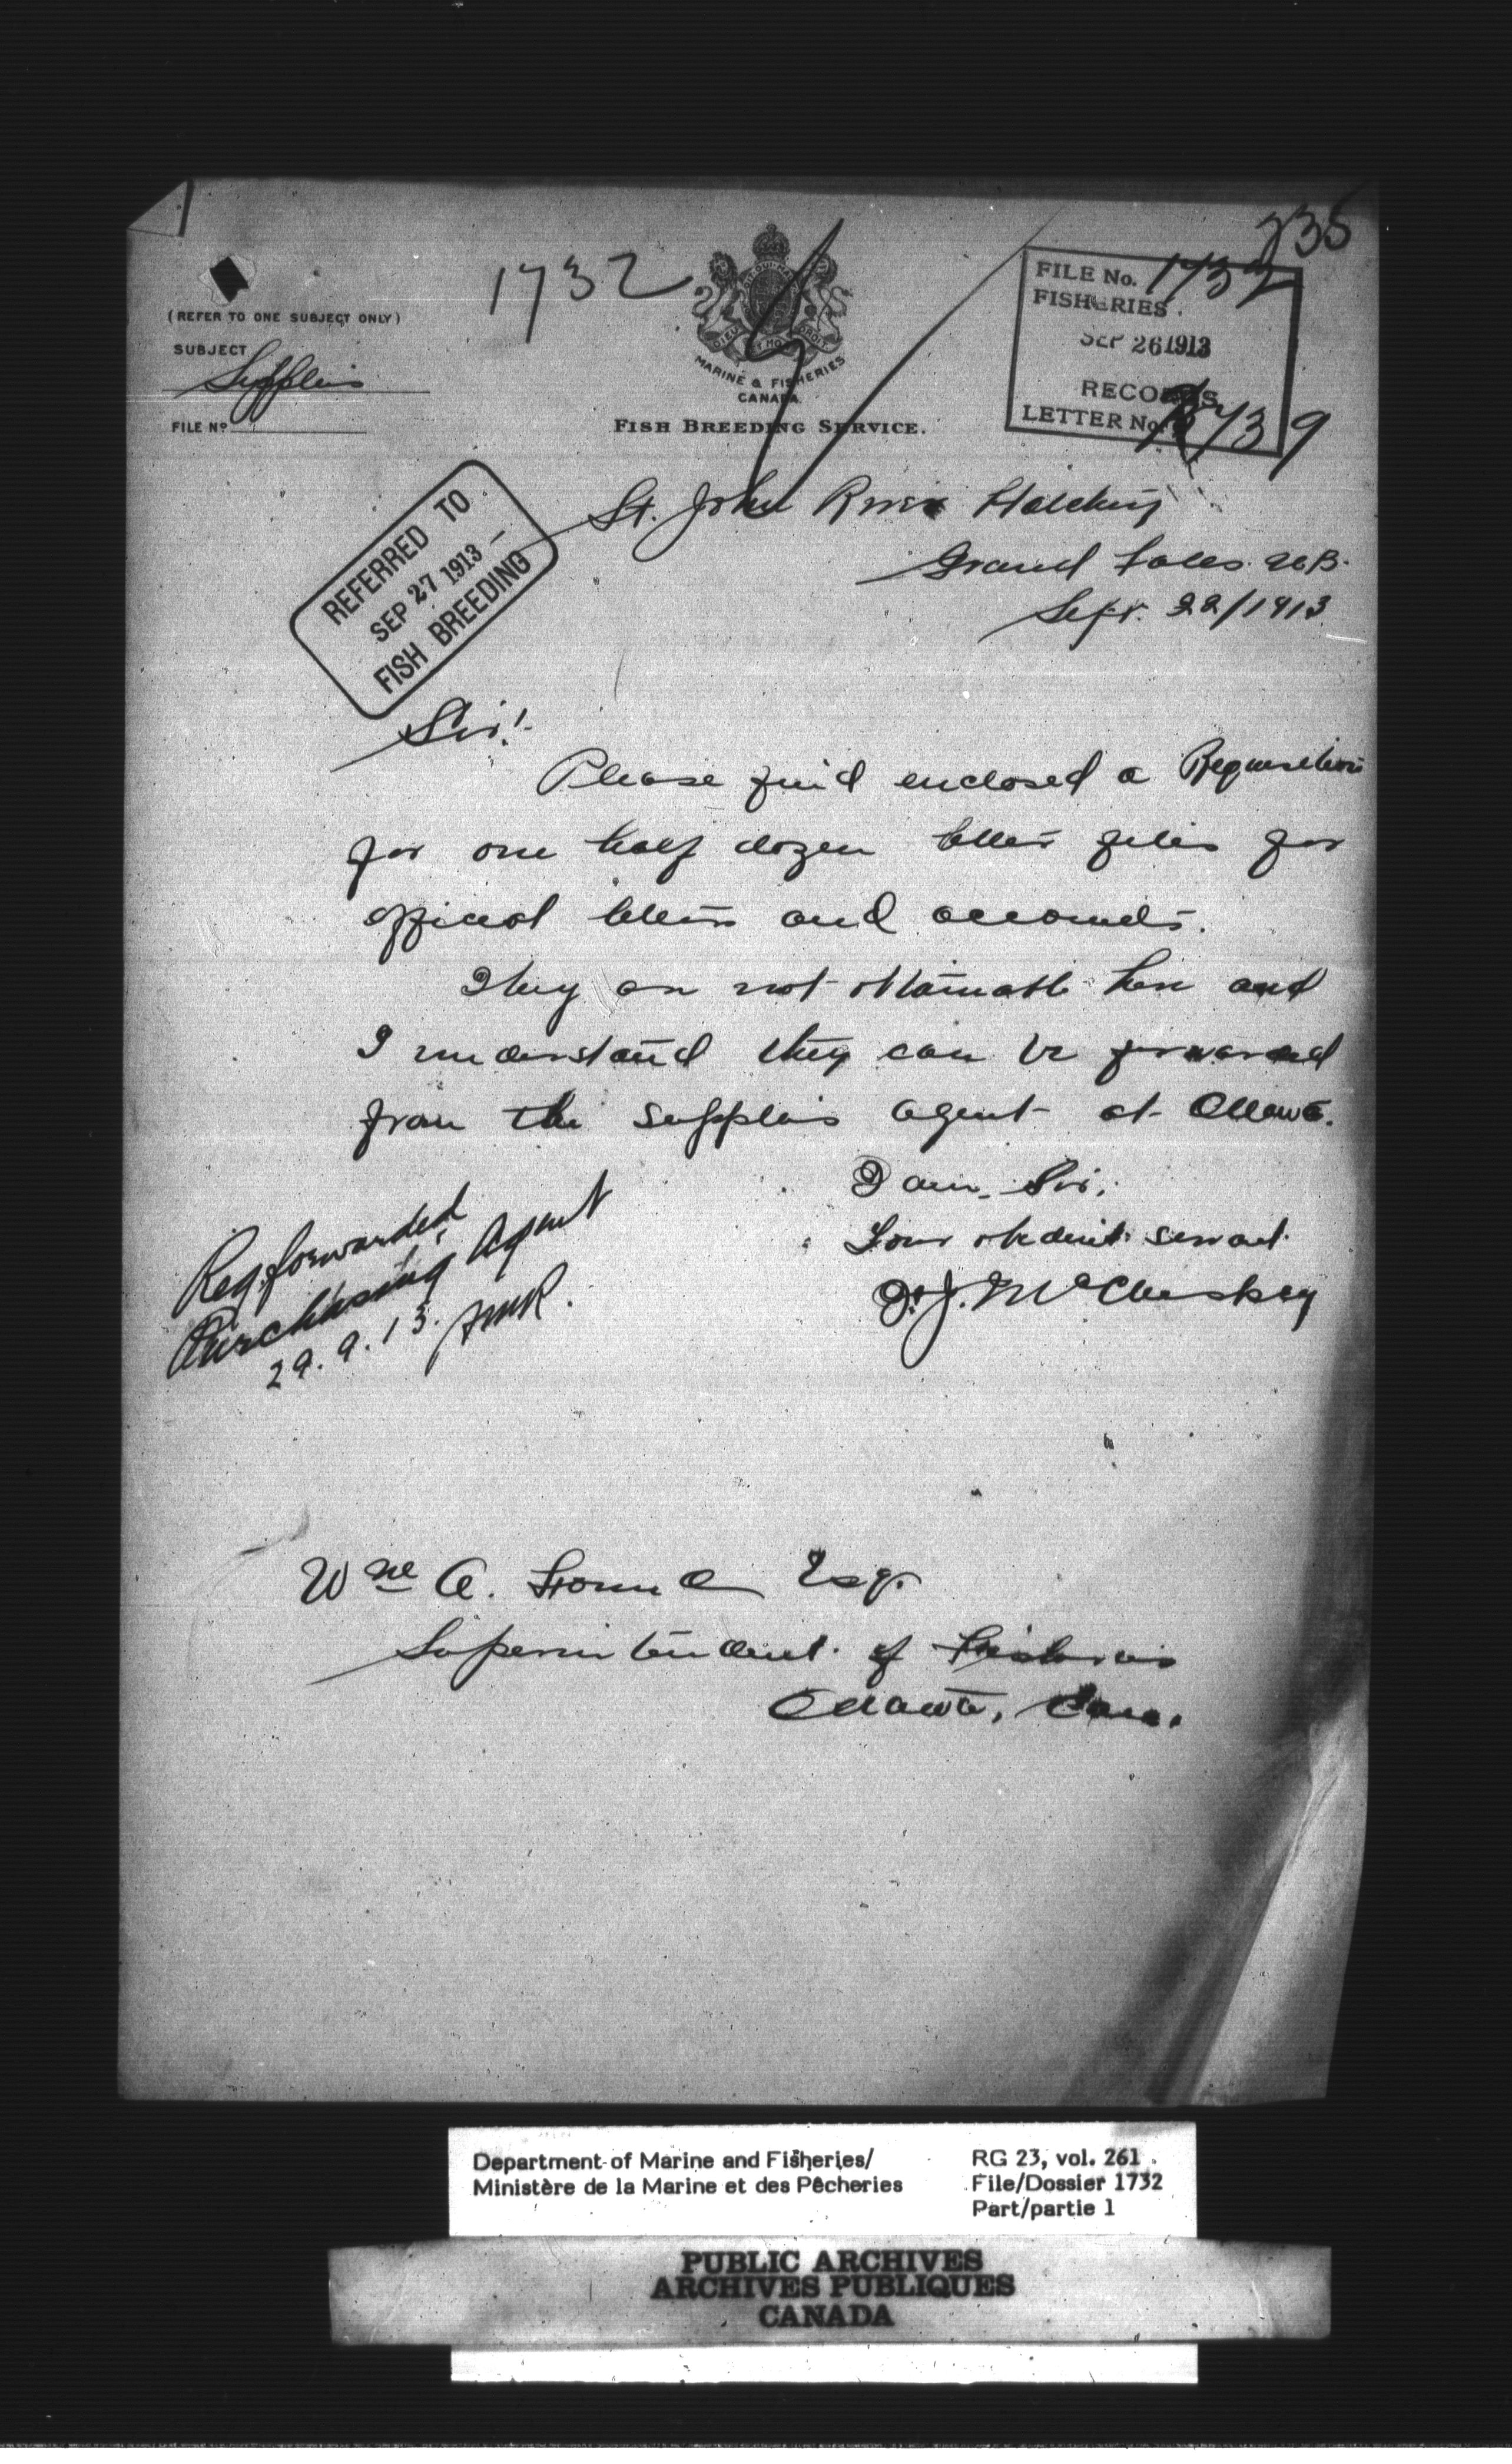 235
1732
(REFER TO ONE SUBJECT ONLY)
SUBJECT Supplies
FILE Nº
DIEU ET MON DROIT
MARINE & FISHERIES
CANADA
FISH BREEDING SERVICE.
FILE No. 1732
FISHERIES.
SEP 26 1913
RECORDS
LETTER No.
REFERRED TO
SEP 27 1913
FISH BREEDING
St. John River Hatchery
Grand Falls. N.B.
Sept. 22/1913
Sir!
Please find enclosed a Requisition
for one half dozen letter files for
official letters and accounts.
They are not obtainable here and
I understand they can be forwarded
from the supplies agent at Ottawa.
I am, Sir,
Your obedient servant.
J. McCluskey
Req. forwarded
Purchasing Agent
29.9.13.
Wm A. Found Esq.
Superintendent of Fisheries
Ottawa, Can.
Department of Marine and Fisheries/
Ministère de la Marine et des Pêcheries
RG 23, vol. 261
File/Dossier 1732
Part/partie 1
PUBLIC ARCHIVES
ARCHIVES PUBLIQUES
CANADA